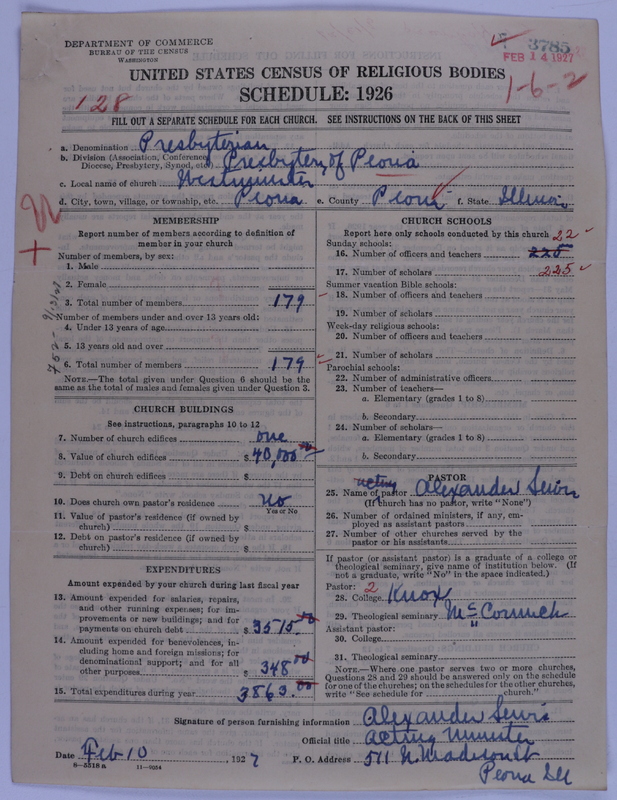 DEPARTMENT OF COMMERCE
BUREAU OF THE CENSUS
WASHINGTON
3785
FEB 14 1927
1-6-2
UNITED STATES CENSUS OF RELIGIOUS BODIES
SCHEDULE: 1926
128
FILL OUT A SEPARATE SCHEDULE FOR EACH CHURCH. SEE INSTRUCTIONS ON THE BACK OF THIS SHEET
a. Denomination Presbyterian
b. Division (Association, Conference, Diocese, Presbytery, Synod, etc.) Presbytery of Peoria
c. Local name of church Westminster
d. City, town, village, or township, etc. Peoria e. County Peoria f. State Illinois
MEMBERSHIP
Report number of members according to definition of
member in your church
Number of members, by sex:
1. Male
2. Female
3. Total number of members 179
Number of members under and over 13 years old:
4. Under 13 years of age
5. 13 years old and over
6. Total number of members 179
NOTE.—The total given under Question 6 should be the
same as the total of males and females given under Question 3.
CHURCH BUILDINGS
See instructions, paragraphs 10 to 12
7. Number of church edifices one
8. Value of church edifices $ 40,000.00
9. Debt on church edifices $
10. Does church own pastor's residence No
Yes or No
11. Value of pastor's residence (if owned by
church) $
12. Debt on pastor's residence (if owned by
church) $
EXPENDITURES
Amount expended by your church during last fiscal year
13. Amount expended for salaries, repairs,
and other running expenses; for im-
provements or new buildings; and for
payments on church debt $ 3515.00
14. Amount expended for benevolences, in-
cluding home and foreign missions; for
denominational support; and for all
other purposes $ 348.00
15. Total expenditures during year 3863.00
CHURCH SCHOOLS
Report here only schools conducted by this church
Sunday schools: 22
16. Number of officers and teachers 225
17. Number of scholars 225
Summer vacation Bible schools:
18. Number of officers and teachers
19. Number of scholars
Week-day religious schools:
20. Number of officers and teachers
21. Number of scholars
Parochial schools:
22. Number of administrative officers
23. Number of teachers—
a. Elementary (grades 1 to 8)
b. Secondary
24. Number of scholars—
a. Elementary (grades 1 to 8)
b. Secondary
PASTOR
acting
25. Name of pastor Alexander Lewis
(If church has no pastor, write "None")
26. Number of ordained ministers, if any, em-
ployed as assistant pastors
27. Number of other churches served by the
pastor or his assistants
If pastor (or assistant pastor) is a graduate of a college or
theological seminary, give name of institution below. (If
not a graduate, write "No" in the space indicated.)
Pastor: 2
28. College Knox
29. Theological seminary McCormick
Assistant pastor:
30. College
31. Theological seminary
NOTE.—Where one pastor serves two or more churches,
Questions 28 and 29 should be answered only on the schedule
for one of the churches; on the schedules for the other churches,
write "See schedule for church."
Signature of person furnishing information Alexander Lewis
Official title Acting Minister
Date Feb 10, 1927 P. O. Address 511 N. Madison St
Peoria Ill
8-5518a 11-9034